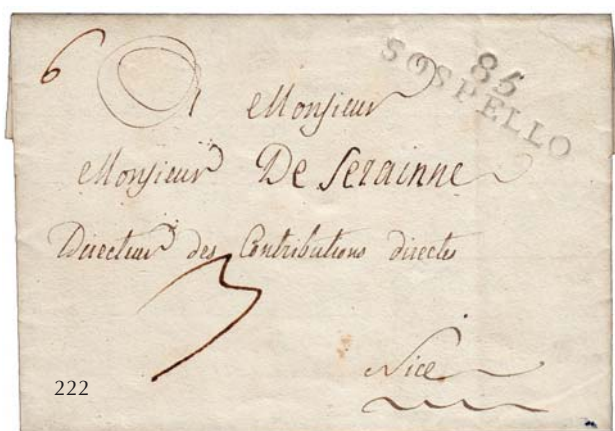 6
85
SOSPELLO
A Monsieur
Monsieur De Serainne
Directeur des Contributions directes
3
Nice
222